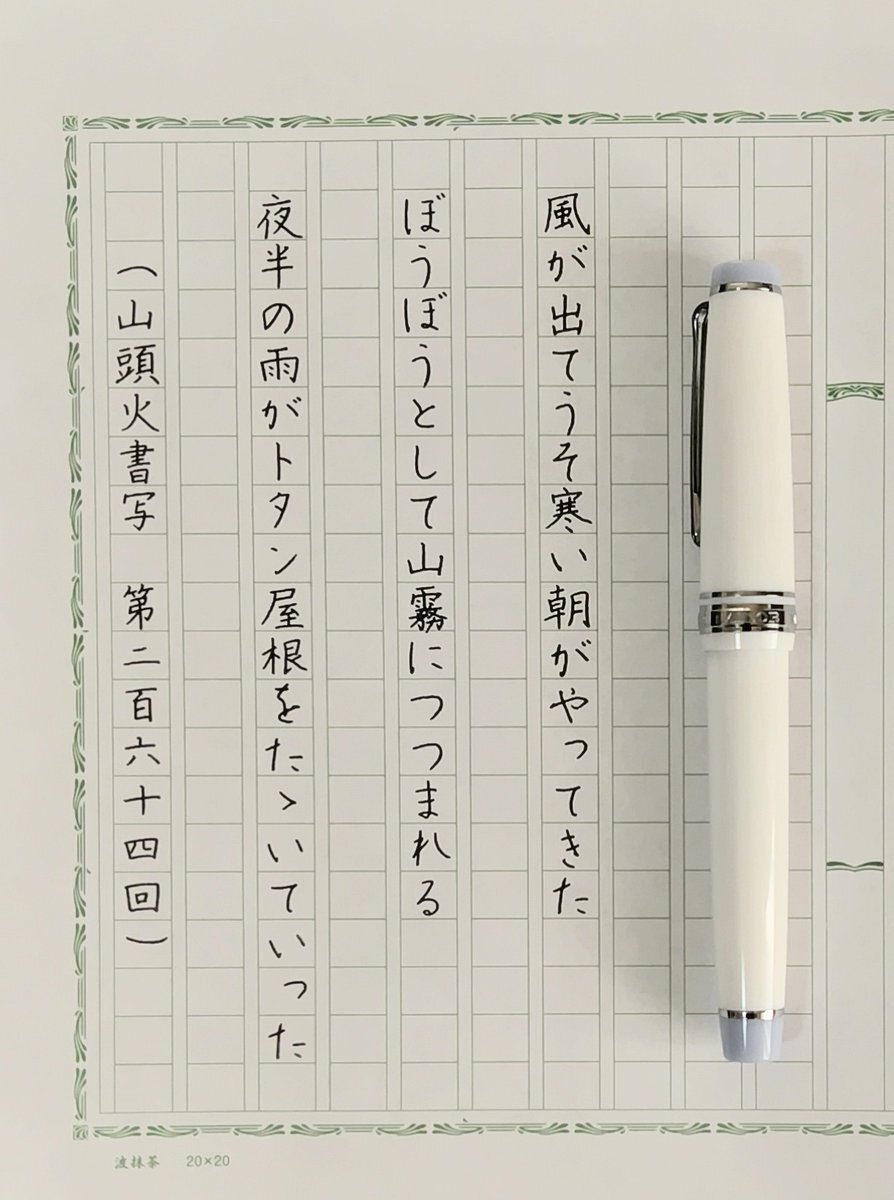 風が出てうそ寒い朝がやってきた
ぼうぼうとして山霧につつまれる
夜半の雨がトタン屋根をたゝいていった
（山頭火書写　第二百六十四回）
波抹茶　20×20